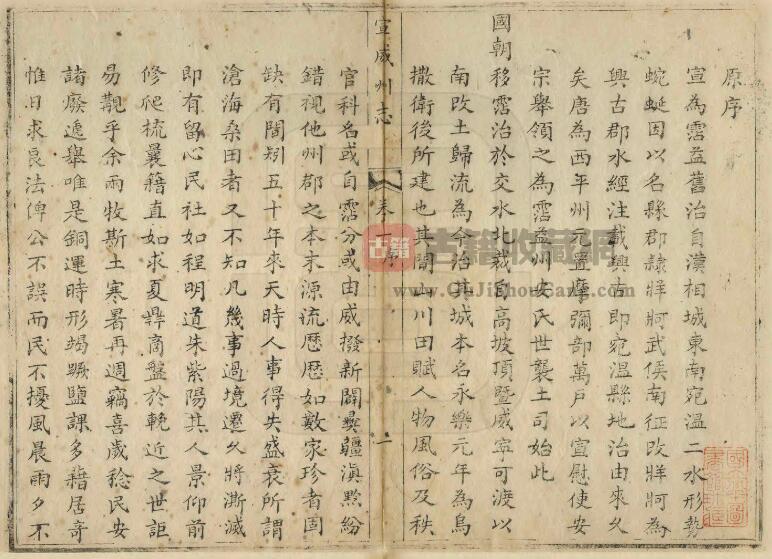 原序
宣為霑益舊治自漢相城東南宛温二水形勢
蜿蜒因以名縣郡隸牂牁武侯南征改牂牁為
興古郡水經注載興古即宛温縣地治由來久
矣唐為西平州元置摩彌部萬戸以宣慰使安
宗舉領之為霑益州安氏世襲土司始此
國朝移霑治於交水北裁自高坡頂暨威寧可渡以
南改土歸流為今治其城本名永樂元年為烏
撒衛後所建也其間山川田賦人物風俗及秩
宣威州志
卷一 序
一
官科名或自霑分或由威撥新闢彛疆滇黔紛
錯視他州郡之本末源流歷歷如數家珍者固
缺有間矧五十年來天時人事得失盛衰所謂
滄海桑田者又不知凡幾事過境遷久將澌滅
即有留心民社如程明道朱紫陽其人景仰前
修爬梳曩籍直如求夏鼎商盤於輓近之世詎
易觀乎余兩牧斯土寒暑再週竊喜歲稔民安
諸廢遞舉唯是銅運時形竭蹶鹽課多藉居奇
惟日求良法俾公不誤而民不擾風晨雨夕不
古籍
古籍收藏網
www.GuJiShouCang.com